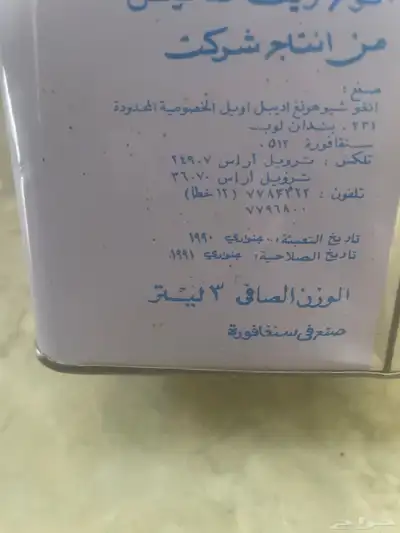 من انتاج شركت
صنع :
انغو شيو هونغ اديبل اويل الخصوصية المحدودة
٢٣١ . بندان لوب
سنغافورة ٥١٢ .
تلكس : ترويل آر اس ٢٤٩٠٧
ترويل آر اس ٣٦٠٧٠
تلفون : ٧٧٨٣٣٦٢ (١٢ خطا)
٧٧٩٦٨٠٠
تاريخ التعبئة : جنوري ١٩٩٠
تاريخ الصلاحية : جنوري ١٩٩١
الوزن الصافى ٣ ليتر
صنع فى سنغافورة
حراج